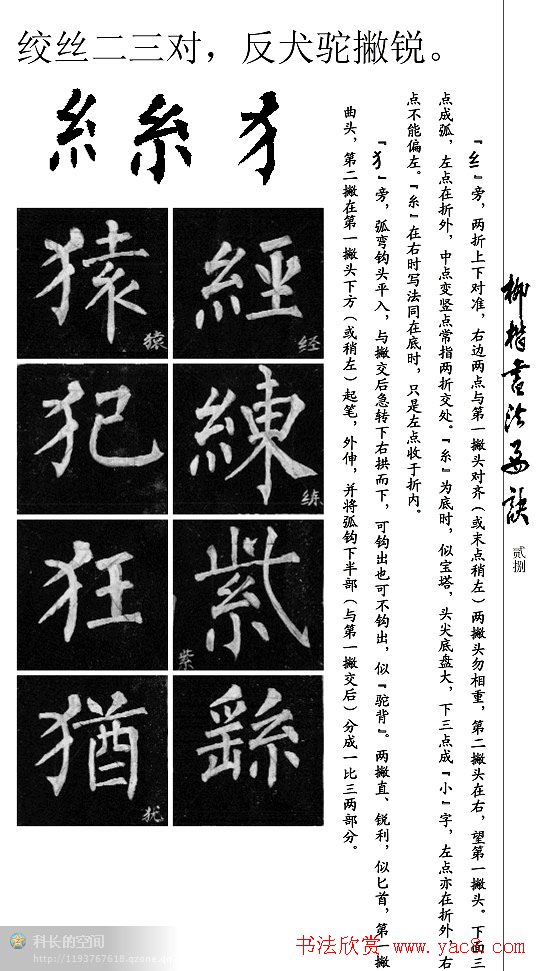 绞丝二三对，反犬驼撇锐。
糹 糸 犭
柳楷書法要訣
贰捌
『纟』旁，两折上下对准，右边两点与第一撇头对齐（或末点稍左）两撇头勿相重，第二撇头在右，望第一撇头。下面三
点成弧，左点在折外，中点变竖点常指两折交处。『糸』为底时，似宝塔，头尖底盘大，下三点成『小』字，左点亦在折外，右
点不能偏左。『糸』在右时写法同在底时，只是左点收于折内。
『犭』旁，弧弯钩头平入，与撇交后急转下右拱而下，可钩出也可不钩出，似『驼背』。两撇直、锐利，似匕首，第一撇
曲头，第二撇在第一撇头下方（或稍左）起笔，外伸，并将弧钩下半部（与第一撇交后）分成一比三两部分。
經
经
練
练
紫
紫
猿
猿
犯
狂
猶
犹
科长的空间
http://1193767618.qzone.qq
书法欣赏 www.yac8.com